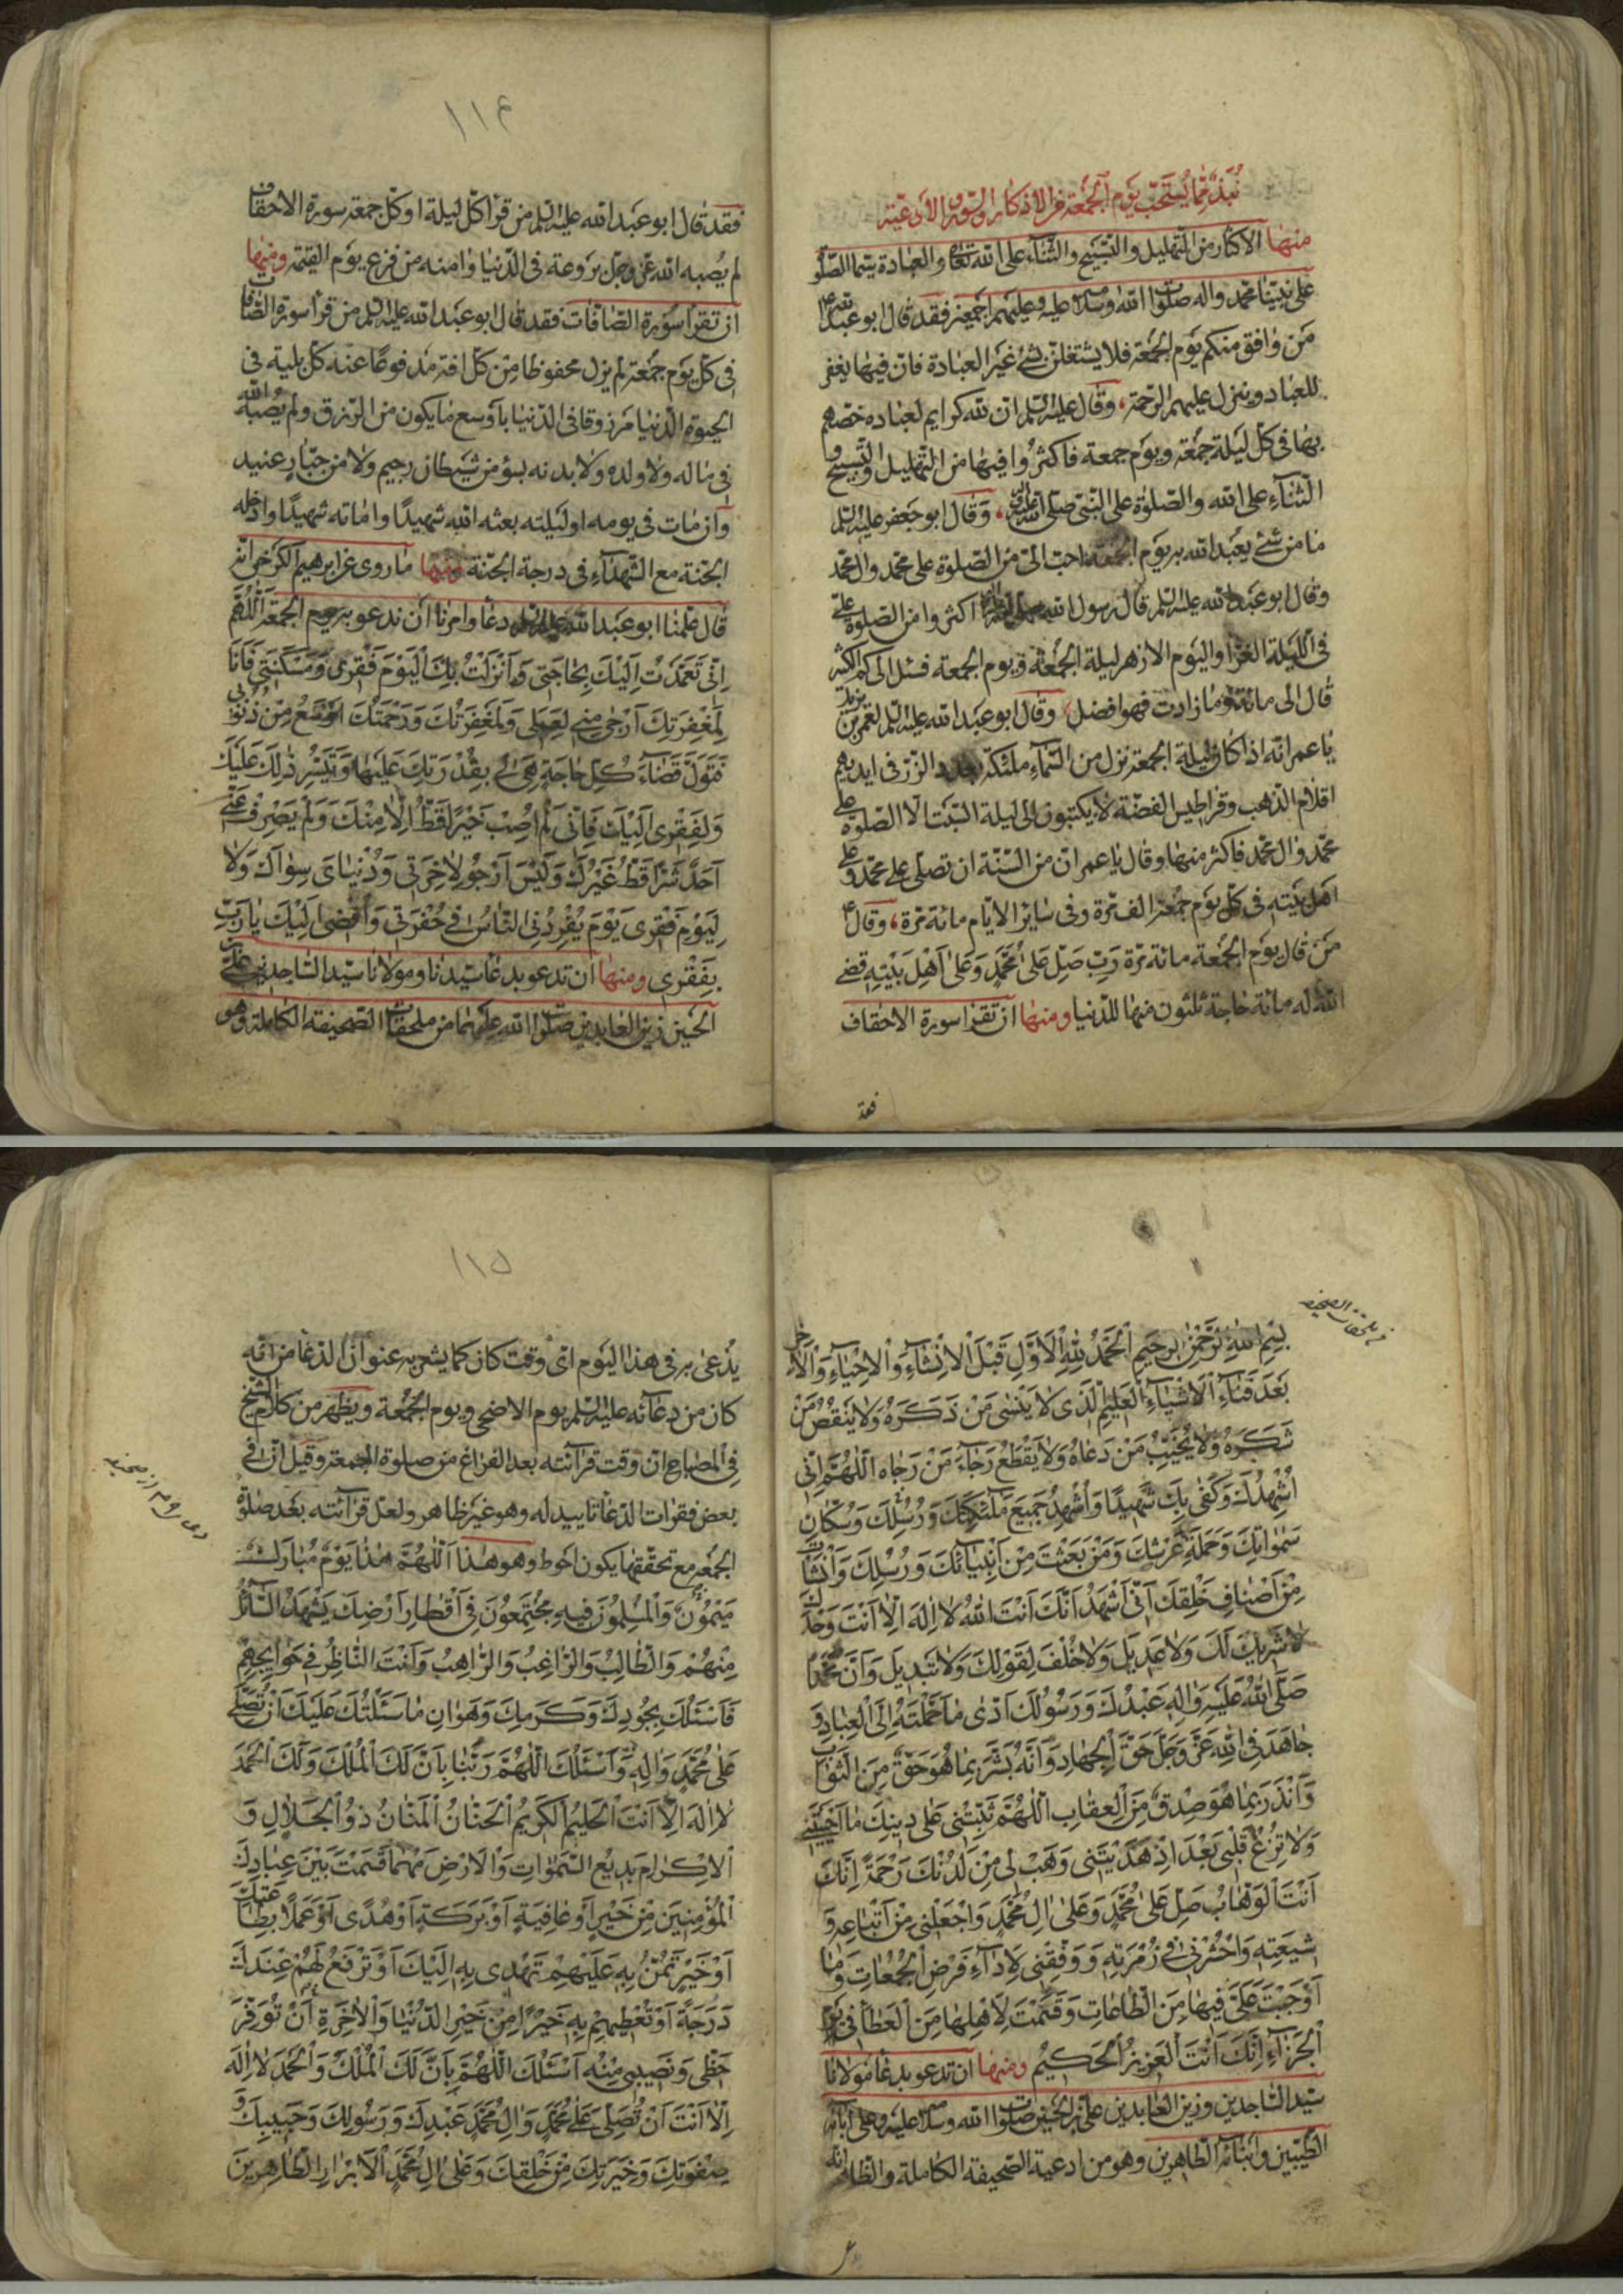 نُبَذٌ مِمّا يُستَحَبّ يَوم الجُمعَة من الأذكار والسّور والأدعية
منها الاكثار من التّهليل والتّسبيح والثّناء على الله تعا والعبادة سيّما الصّلو
على نبيّنا محمّد واله صلوات الله وسلامه عليه وعليهم اجمعين فقد قال ابو عبد الله ع
مَن وافق منكم يوم الجمعة فلا يشتغلنّ بشئ غير العبادة فانّ فيها يغفر
للعباد وينزل عليهم الرّحمة، وقال عليه السّلم انّ لله كرايم لعباده خصّهم
بها فى كلّ ليلة جمعة ويوم جمعة فاكثروا فيها من التّهليل والتّسبيح و
الثّناء على الله والصّلوة على النّبىّ صلّى الله عليه واله، وقال ابو جعفر عليه السّلم
ما من شئ يعبد الله به يوم الجمعة احبّ الىّ من الصّلوة على محمّد وال محمّد
وقال ابو عبد الله عليه السّلم قال رسول الله اكثروا من الصّلوة علىّ
فى اللّيلة الغرّا واليوم الازهر ليلة الجمعة ويوم الجمعة فسئل الى كم الكثير
قال الى مائة وما زادت فهو افضل، وقال ابو عبد الله عليه السّلم لعمر بن يزيد
يا عمر انّه اذا كان ليلة الجمعة نزل من السّماء ملئكة بعدد الذّرّ فى ايديهم
اقلام الذّهب وقراطيس الفضّة لا يكتبون الى ليلة السّبت الّا الصّلوة على
محمّد وال محمّد فاكثر منها وقال يا عمر انّ من السّنّة ان تصلّى على محمّد وعلى
اهل بيته فى كلّ يوم جمعة الف مرّة وفى سائر الايّام مائة مرّة، وقال ع
مَن قال يوم الجمعة مائة مرّة رَبِّ صَلِّ عَلى مُحَمَّدٍ وَعَلى اَهلِ بَيتِهِ قضى
الله له مائة حاجة ثلثون منها للدّنيا ومنها ان تقرا سورة الاحقاف
فقد
١١٤
فقد قال ابو عبد الله عليه السّلم من قرا كلّ ليلة او كلّ جمعة سورة الاحقاف
لم يُصبه الله عزّ وجلّ بروعة فى الدّنيا وامنه من فزع يوم القيمة ومنها
ان تقرا سورة الصّافّات فقد قال ابو عبد الله عليه السّلم من قرا سورة الصّافّات
فى كلّ يوم جمعة لم يزل محفوظا من كلّ افة مدفوعًا عنه كلّ بلية فى
الحيوة الدّنيا مرزوقا فى الدّنيا باوسع ما يكون من الرّزق ولم يُصبه الله
فى ماله ولا ولده ولا بدنه بسوء من شيطان رجيم ولا من جبّار عنيد
وان مات فى يومه او ليلته بعثه الله شهيدًا واماته شهيدًا وادخله
الجنّة مع الشّهداء فى درجة الجنّة ومنها ما روى عن ابرهيم الكرخى انّه
قال علّمنا ابو عبد الله عليه السّلم دعاء وامرنا ان ندعو به يوم الجمعة اَللّهُمَّ
اِنّى تَعَمَّدتُ اِلَيكَ بِحاجَتى وَاَنزَلتُ بِكَ اليَومَ فَقرى وَمَسكَنَتى فَاَنَا
لِمَغفِرَتِكَ اَرجى مِنّى لِعَمَلى وَلَمَغفِرَتُكَ وَرَحمَتُكَ اَوسَعُ مِن ذُنُوبى
فَتَوَلَّ قَضاءَ كُلِّ حاجَةٍ هِىَ لى بِقُدرَتِكَ عَلَيها وَتَيَسُّرِ ذلِكَ عَلَيكَ
وَلِفَقرى اِلَيكَ فَاِنّى لَم اُصِب خَيرًا قَطُّ اِلّا مِنكَ وَلَم يَصرِف عَنّى
اَحَدٌ شَرًّا قَطُّ غَيرُكَ وَلَيسَ اَرجُو لِاخِرَتى وَدُنياىَ سِواكَ وَلا
لِيَومِ فَقرى يَومَ يُفرِدُنِى النّاسُ فى حُفرَتى وَاُفضى اِلَيكَ يا رَبِّ
بِفَقرى ومنها ان تدعو بدعاء سيّدنا ومولانا سيّد السّاجدين علىّ بن
الحسين زين العابدين صلوات الله عليهما من ملحقات الصّحيفة الكاملة وهو
من ملحقات الصحيفة
بِسمِ اللهِ الرَّحمنِ الرَّحيمِ اَلحَمدُ لِلّهِ الاَوَّلِ قَبلَ الاِنشاءِ وَالاِحياءِ وَالاخِرِ
بَعدَ فَناءِ الاَشياءِ العَليمِ الَّذى لا يَنسى مَن ذَكَرَهُ وَلا يَنقُصُ مَن
شَكَرَهُ وَلا يُخَيِّبُ مَن دَعاهُ وَلا يَقطَعُ رَجاءَ مَن رَجاه اَللّهُمَّ اِنّى
اُشهِدُكَ وَكَفى بِكَ شَهيدًا وَاُشهِدُ جَميعَ مَلئِكَتِكَ وَرُسُلِكَ وَسُكّانِ
سَمواتِكَ وَحَمَلَةِ عَرشِكَ وَمَن بَعَثتَ مِن اَنبِيائِكَ وَرُسُلِكَ وَاَنشَاتَ
مِن اَصنافِ خَلقِكَ اَنّى اَشهَدُ اَنَّكَ اَنتَ اللهُ لا اِلهَ اِلّا اَنتَ وَحدَكَ
لا شَريكَ لَكَ وَلا عَديلَ وَلا خُلفَ لِقَولِكَ وَلا تَبديلَ وَاَنَّ مُحَمَّدًا
صَلَّى اللهُ عَلَيهِ وَالِهِ عَبدُكَ وَرَسُولُكَ اَدّى ما حَمَّلتَهُ اِلَى العِبادِ وَ
جاهَدَ فِى اللهِ عَزَّ وَجَلَّ حَقَّ الجِهادِ وَاَنَّهُ بَشَّرَ بِما هُوَ حَقٌّ مِنَ الثَّوابِ
وَاَنذَرَ بِما هُوَ صِدقٌ مِنَ العِقابِ اَللّهُمَّ ثَبِّتنى عَلى دينِكَ ما اَحيَيتَنى
وَلا تُزِغ قَلبى بَعدَ اِذ هَدَيتَنى وَهَب لى مِن لَدُنكَ رَحمَةً اِنَّكَ
اَنتَ الوَهّابُ صَلِّ عَلى مُحَمَّدٍ وَعَلى الِ مُحَمَّدٍ وَاجعَلنى مِن اَتباعِهِ وَ
شيعَتِهِ وَاحشُرنى فى زُمرَتِهِ وَوَفِّقنى لِاَداءِ فَرضِ الجُمُعاتِ وَما
اَوجَبتَ عَلَىَّ فيها مِنَ الطّاعاتِ وَقَسَمتَ لِاَهلِها مِنَ العَطاءِ فى يَومِ
الجَزاءِ اِنَّكَ اَنتَ العَزيزُ الحَكيمُ ومنها ان تدعو بدعاء مولانا
سيّد السّاجدين وزين العابدين علىّ بن الحسين صلوات الله وسلامه عليه وعلى ابائه
الطّيّبين وابنائه الطّاهرين وهو من ادعية الصّحيفة الكاملة والظّاهر انّه
١١٥
يُدعى به فى هذا اليوم اىّ وقت كان كما يشعر به عنوان الدّعاء من انّه
كان من دعائه عليه السّلم يوم الاضحى ويوم الجمعة ويظهر من كلام الشّيخ
فى المصباح انّ وقت قرائته بعد الفراغ من صلوة الجمعة وقيل انّ فى
بعض فقرات الدّعاء تاييد له وهو غير ظاهر ولعلّ قرائته بعد صلوة
الجمعة مع تحقّقها يكون احوط وهو هذا اَللّهُمَّ هذا يَومٌ مُبارَكٌ
مَيمُونٌ وَالمُسلِمُونَ فيهِ مُجتَمِعُونَ فى اَقطارِ اَرضِكَ يَشهَدُ السّائِلُ
مِنهُم وَالطّالِبُ وَالرّاغِبُ وَالرّاهِبُ وَاَنتَ النّاظِرُ فى حَوائِجِهِم
فَاَسئَلُكَ بِجُودِكَ وَكَرَمِكَ وَهَوانِ ما سَئَلتُكَ عَلَيكَ اَن تُصَلِّىَ
عَلى مُحَمَّدٍ وَالِهِ وَاَسئَلُكَ اللّهُمَّ رَبَّنا بِاَنَّ لَكَ المُلكَ وَلَكَ الحَمدَ
لا اِلهَ اِلّا اَنتَ الحَليمُ الكَريمُ الحَنّانُ المَنّانُ ذُو الجَلالِ وَ
الاِكرامِ بَديعُ السَّمواتِ وَالاَرضِ مَهما قَسَمتَ بَينَ عِبادِكَ
المُؤمِنينَ مِن خَيرٍ اَو عافِيَةٍ اَو بَرَكَةٍ اَو هُدًى اَو عَمَلٍ بِطاعَتِكَ
اَو خَيرٍ تَمُنُّ بِهِ عَلَيهِم تَهدى بِهِ اِلَيكَ اَو تَرفَعُ لَهُم عِندَكَ
دَرَجَةً اَو تُعطيهِم بِهِ خَيرًا مِن خَيرِ الدُّنيا وَالاخِرَةِ اَن تُوَفِّرَ
حَظّى وَنَصيبى مِنهُ اَسئَلُكَ اللّهُمَّ بِاَنَّ لَكَ المُلكَ وَالحَمدَ لا اِلهَ
اِلّا اَنتَ اَن تُصَلِّىَ عَلى مُحَمَّدٍ وَالِ مُحَمَّدٍ عَبدِكَ وَرَسُولِكَ وَحَبيبِكَ وَ
صِفوَتِكَ وَخِيَرَتِكَ مِن خَلقِكَ وَعَلى الِ مُحَمَّدٍ الاَبرارِ الطّاهِرينَ